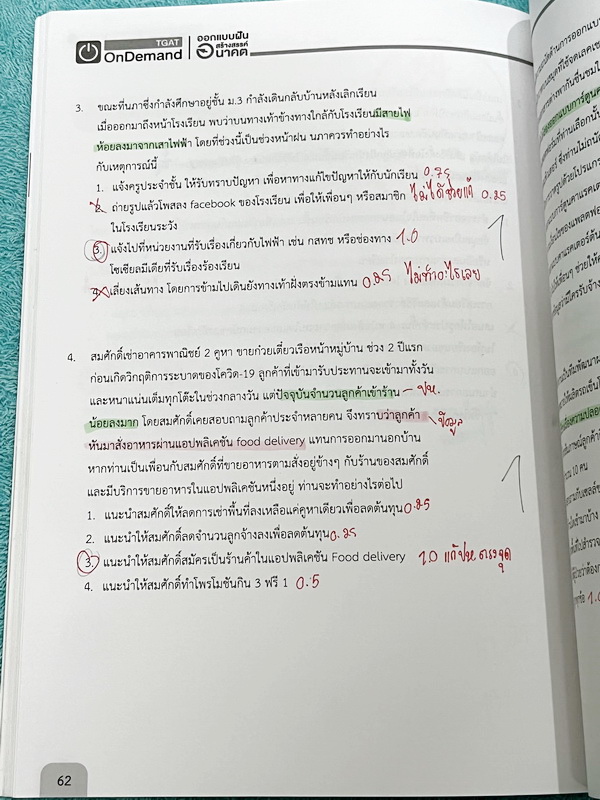 TGAT
OnDemand
ออกแบบฝัน
สร้างสรรค์
อนาคต
3. ขณะที่นภาซึ่งกำลังศึกษาอยู่ชั้น ม.3 กำลังเดินกลับบ้านหลังเลิกเรียน
เมื่อออกมาถึงหน้าโรงเรียน พบว่าบนทางเท้าข้างทางใกล้กับโรงเรียนมีสายไฟ
ห้อยลงมาจากเสาไฟฟ้า โดยที่ช่วงนี้เป็นช่วงหน้าฝน นภาควรทำอย่างไร
กับเหตุการณ์นี้
1. แจ้งครูประจำชั้น ให้รับทราบปัญหา เพื่อหาทางแก้ไขปัญหาให้กับนักเรียน 0.75
2. ถ่ายรูปแล้วโพสลง facebook ของโรงเรียน เพื่อให้เพื่อนๆ หรือสมาชิก ไม่ได้ช่วยแก้ 0.25
ในโรงเรียนระวัง
1
3. แจ้งไปที่หน่วยงานที่รับเรื่องเกี่ยวกับไฟฟ้า เช่น กสทช หรือช่องทาง 1.0
โซเชียลมีเดียที่รับเรื่องร้องเรียน
4. เลี่ยงเส้นทาง โดยการข้ามไปเดินยังทางเท้าฝั่งตรงข้ามแทน 0.25 ไม่ทำอะไรเลย
4. สมศักดิ์เช่าอาคารพาณิชย์ 2 คูหา ขายก๋วยเตี๋ยวเรือหน้าหมู่บ้าน ช่วง 2 ปีแรก
ก่อนเกิดวิกฤติการระบาดของโควิด-19 ลูกค้าที่เข้ามารับประทานจะเข้ามาทั้งวัน
และหนาแน่นเต็มทุกโต๊ะในช่วงกลางวัน แต่ปัจจุบันจำนวนลูกค้าเข้าร้าน – ปห.
น้อยลงมาก โดยสมศักดิ์เคยสอบถามลูกค้าประจำหลายคน จึงทราบว่าลูกค้า ข้อมูล
หันมาสั่งอาหารผ่านแอปพลิเคชัน food delivery แทนการออกมานอกบ้าน
หากท่านเป็นเพื่อนกับสมศักดิ์ที่ขายอาหารตามสั่งอยู่ข้างๆ กับร้านของสมศักดิ์
และมีบริการขายอาหารในแอปพลิเคชันหนึ่งอยู่ ท่านจะทำอย่างไรต่อไป
1
1. แนะนำสมศักดิ์ให้ลดการเช่าพื้นที่ลงเหลือแค่คูหาเดียวเพื่อลดต้นทุน 0.25
2. แนะนำให้สมศักดิ์ลดจำนวนลูกจ้างลงเพื่อลดต้นทุน 0.25
3. แนะนำให้สมศักดิ์สมัครเป็นร้านค้าในแอปพลิเคชัน Food delivery 1.0 แก้ปห ตรงจุด
4. แนะนำให้สมศักดิ์ทำโพรโมชันกิน 3 ฟรี 1 0.5
62